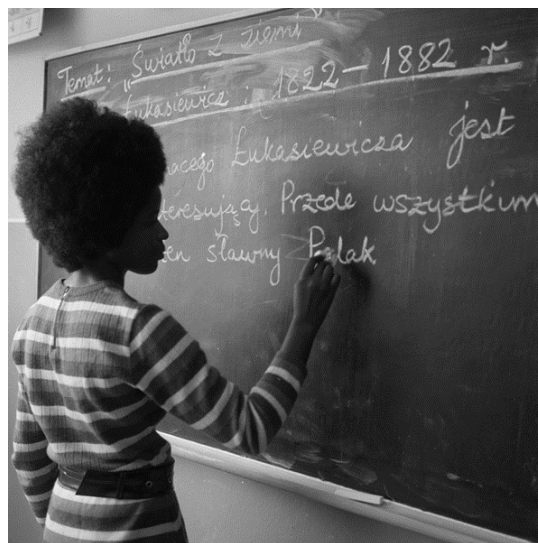 Temat: „Światło z ziemi”
Łukasiewicz : 1822 – 1882 r.
Łukasiewicza jest
Przede wszystkim
sławny Polak